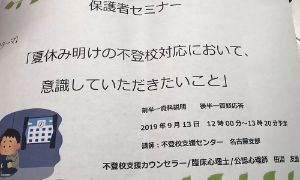 保護者セミナー
「夏休み明けの不登校対応において、
意識していただきたいこと」
前半―資料説明 後半―質疑応答
2019年9月13日 12時00分~13時20分予定
講師:不登校支援センター 名古屋支部
不登校支援カウンセラー/臨床心理士/公認心理師